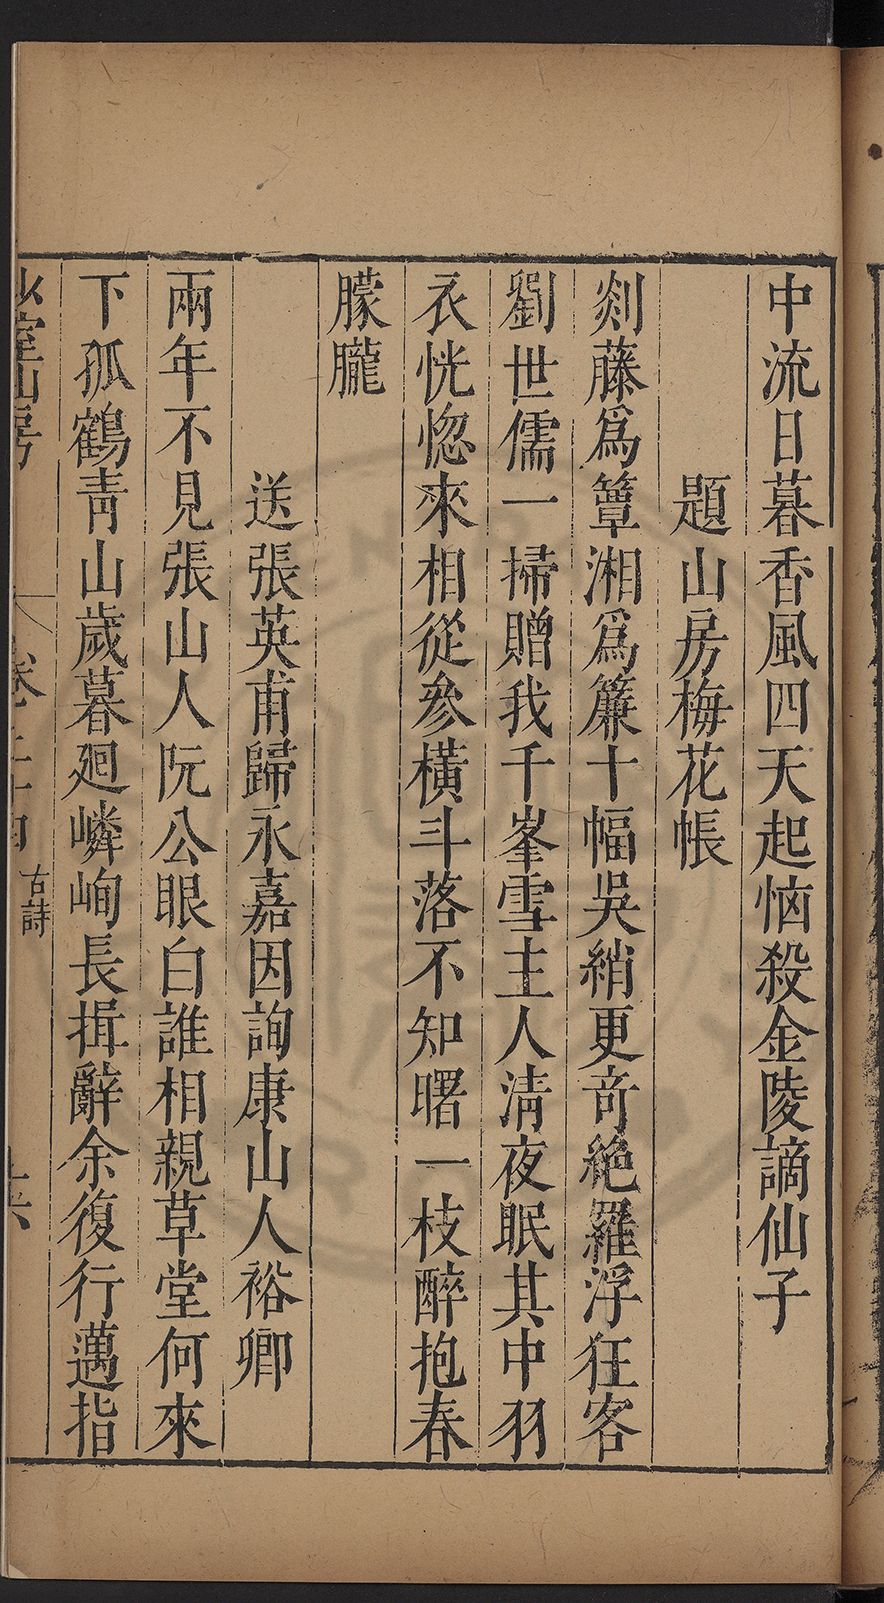 中流日暮香風四天起惱殺金陵謫仙子
題山房梅花帳
剡藤爲簟湘爲簾十幅吳綃更奇絕羅浮狂客
劉世儒一掃贈我千峯雪主人清夜眠其中羽
衣恍惚來相從參橫斗落不知曙一枝醉抱春
朦朧
送張英甫歸永嘉因詢康山人裕卿
兩年不見張山人阮公眼白誰相親草堂何來
下孤鶴青山歲暮廻嶙峋長揖辭余復行邁指
山房
卷
古詩